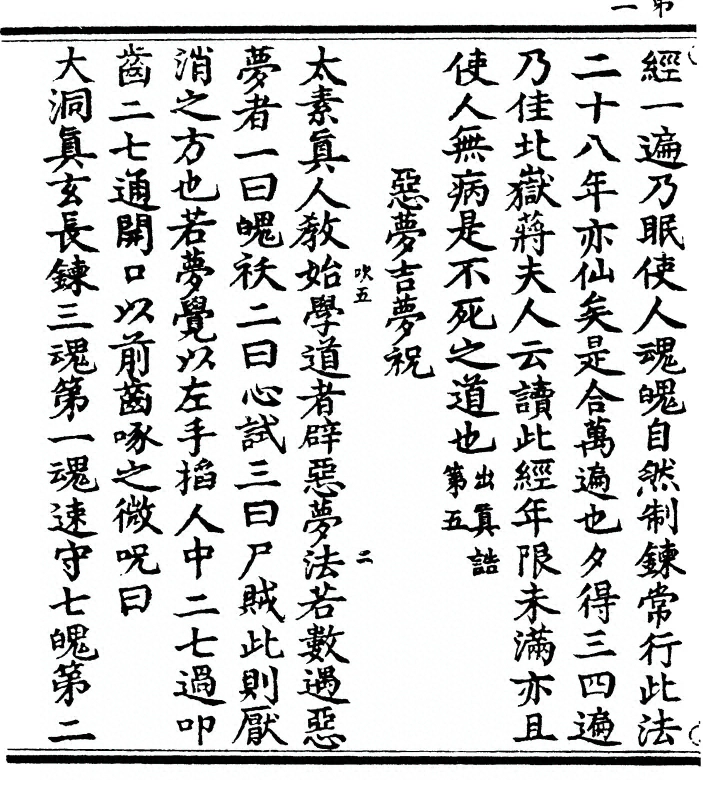 經一遍乃眠使人魂魄自然制鍊常行此法
二十八年亦仙矣是合萬遍也夕得三四遍
乃佳北嶽蔣夫人云讀此經年限未滿亦且
使人無病是不死之道也出眞誥第五
惡夢吉夢祝
太素眞人教始學道者辟惡夢法若數遇惡
夢者一曰魄祅二曰心試三曰尸賊此則厭
消之方也若夢覺以左手搯人中二七過叩
齒二七通開口以前齒啄之微呪曰
大洞眞玄長鍊三魂第一魂速守七魄第二